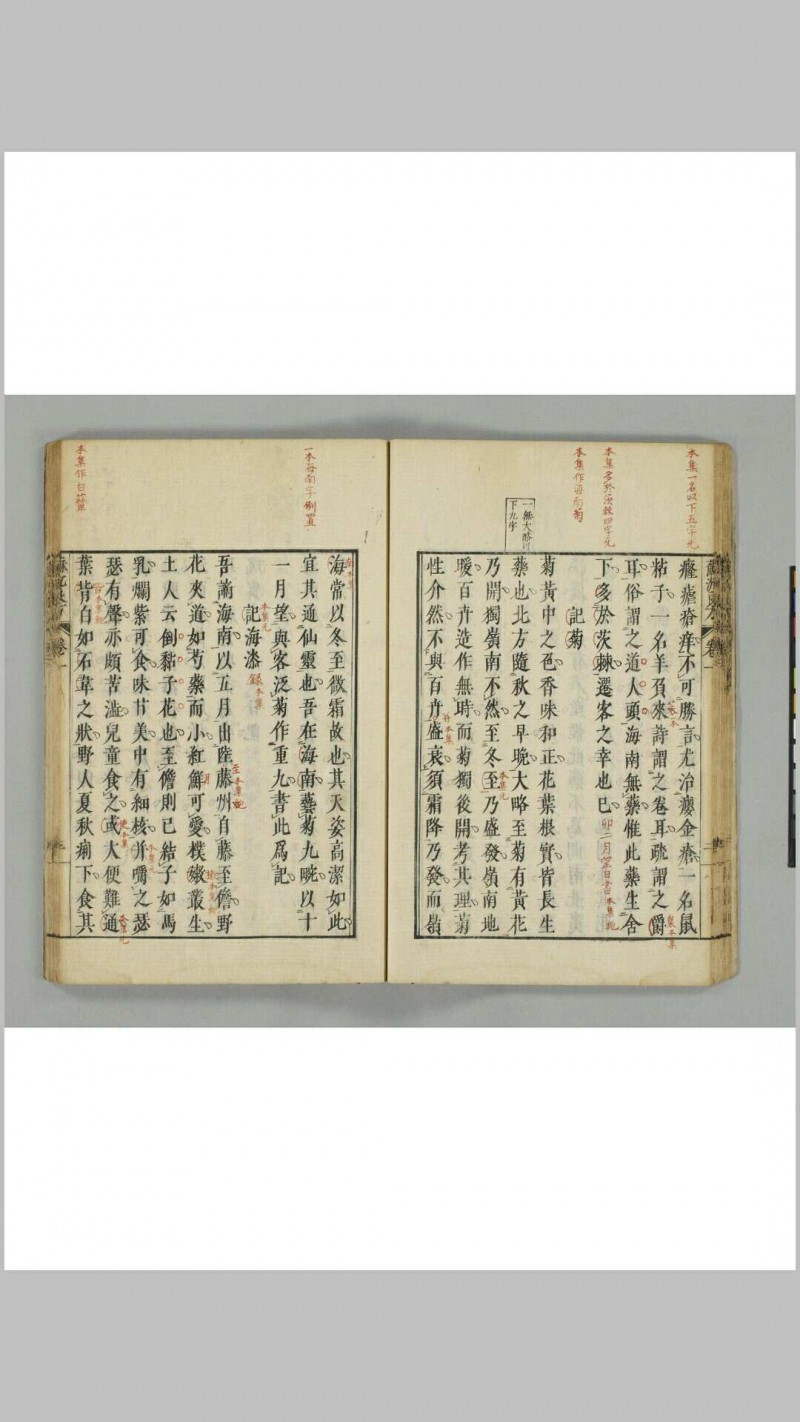 癰瘡瘡痒不可勝言尤治癭金瘡一名鼠
粘子一名羊負來詩謂之卷耳疏謂之爵
耳俗謂之道人頭海南無藥惟此藥生舍
下多於茨棘遷客之幸也已
記菊
菊黃中之色香味和正花葉根實皆長生
藥也北方隨秋之早晚大略至菊有黃花
乃開獨嶺南不然至冬至乃盛發嶺南地
暖百卉造作無時而菊獨後開考其理菊
性介然不與百卉盛衰須霜降乃發而嶺
海常以冬至微霜故也其天姿高潔如此
宜其通仙靈也吾在海南藝菊九畹以十
一月望與客泛菊作重九書此爲記
記海漆
吾謫海南以五月出陸藤州自藤至儋野
花夾道如芍藥而小紅鮮可愛樸樕叢生
土人云倒黏子花也至儋則已結子如馬
乳爛紫可食味甘美中有細核并嚼之瑟
瑟有聲亦頗苦澁兒童食之或大便難通
葉背白如石葦之狀野人夏秋痢下食其
本集一名以下五字无
本集多於茨棘四字无
本集作海南菊
一無大略以
下九字
一本海南字倒置
卷一
卷一